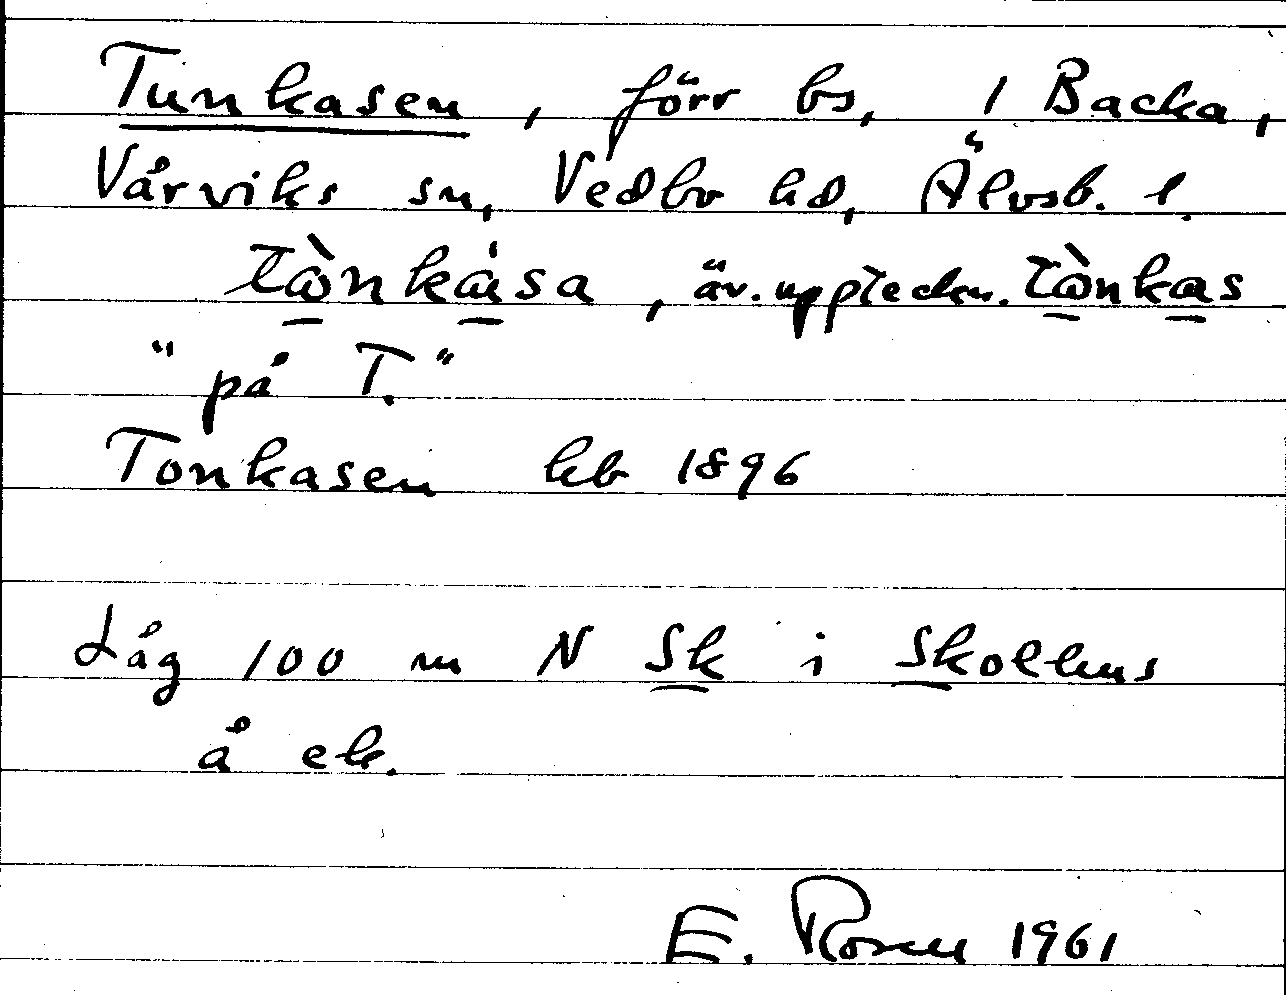 Tunkasen, förr bs, 1 Backa,
Vårviks sn, Vedbo hd, Älvsb. l.
tònkása, äv. uppteckn. tònkas
"på T."
Tonkasen hb 1896
Låg 100 m N Sk i Skollhus
å ek.
E. Rosen 1961